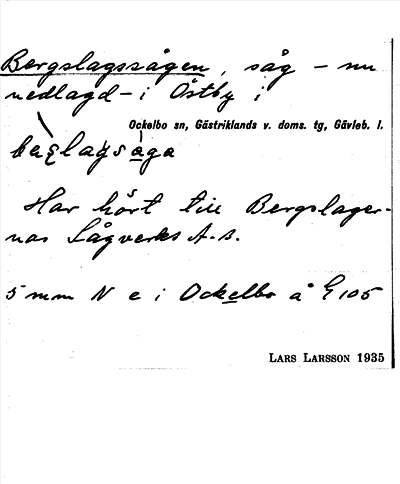 Bergslagssågen, såg – nu
nedlagd – i Östby i
Ockelbo sn, Gästriklands v. doms. tg, Gävleb. l.
Har hört till Bergslager-
nas Sågverks A.-B.
5 mm N e i Ockelbo å G 105
LARS LARSSON 1935